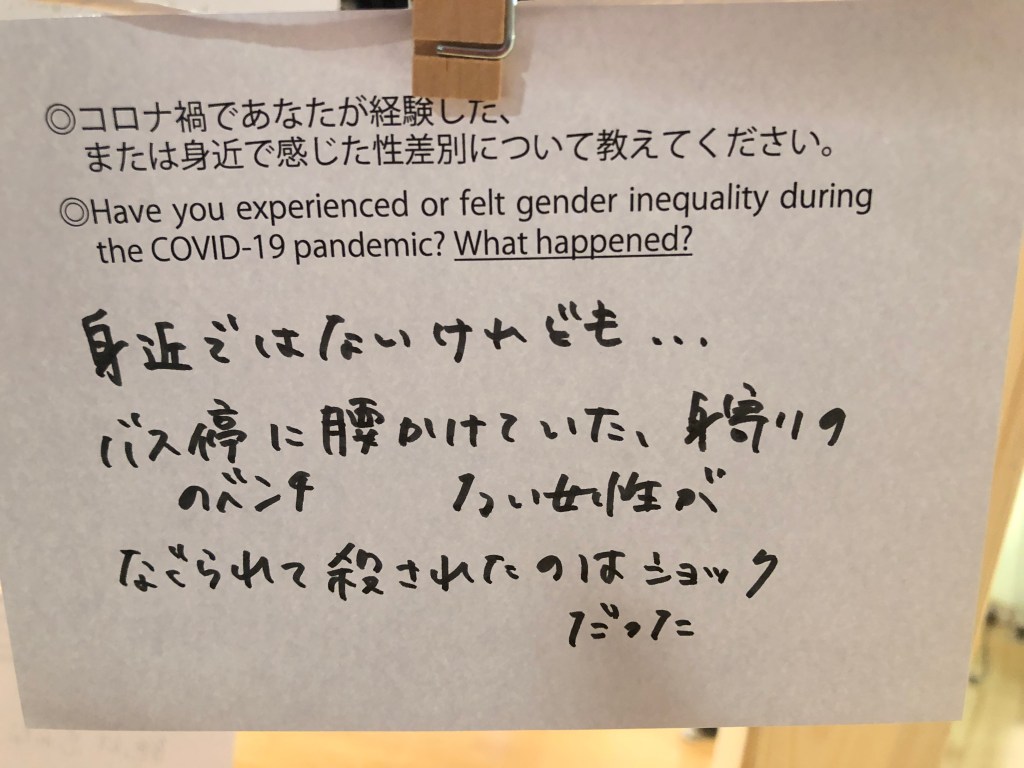 ◎コロナ禍であなたが経験した、
または身近で感じた性差別について教えてください。
◎Have you experienced or felt gender inequality during
the COVID-19 pandemic? What happened?
身近ではないけれども...
バス停に腰かけていた、身寄りの
のベンチ
ない女性が
なぐられて殺されたのはショック
だった